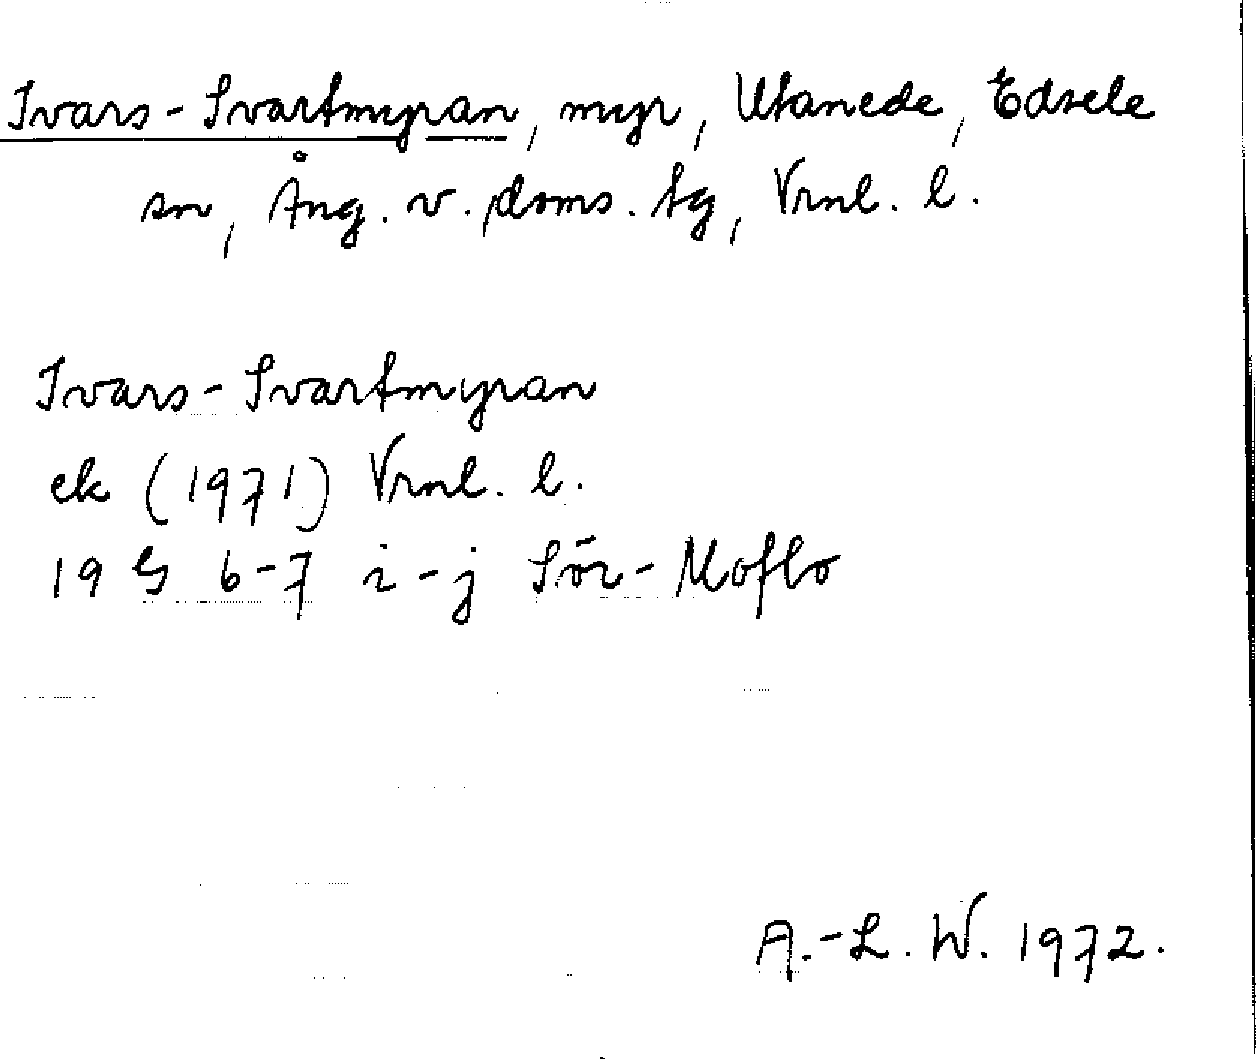 Ivars-Svartmyran, myr, Utanede, Edsele
sn, Ång. v. doms. tg, Vrnl. l.
Ivars-Svartmyran
ek (1971) Vrnl. l.
19 G 6-7 i-j Sör-Moflo
A.-L. W. 1972.